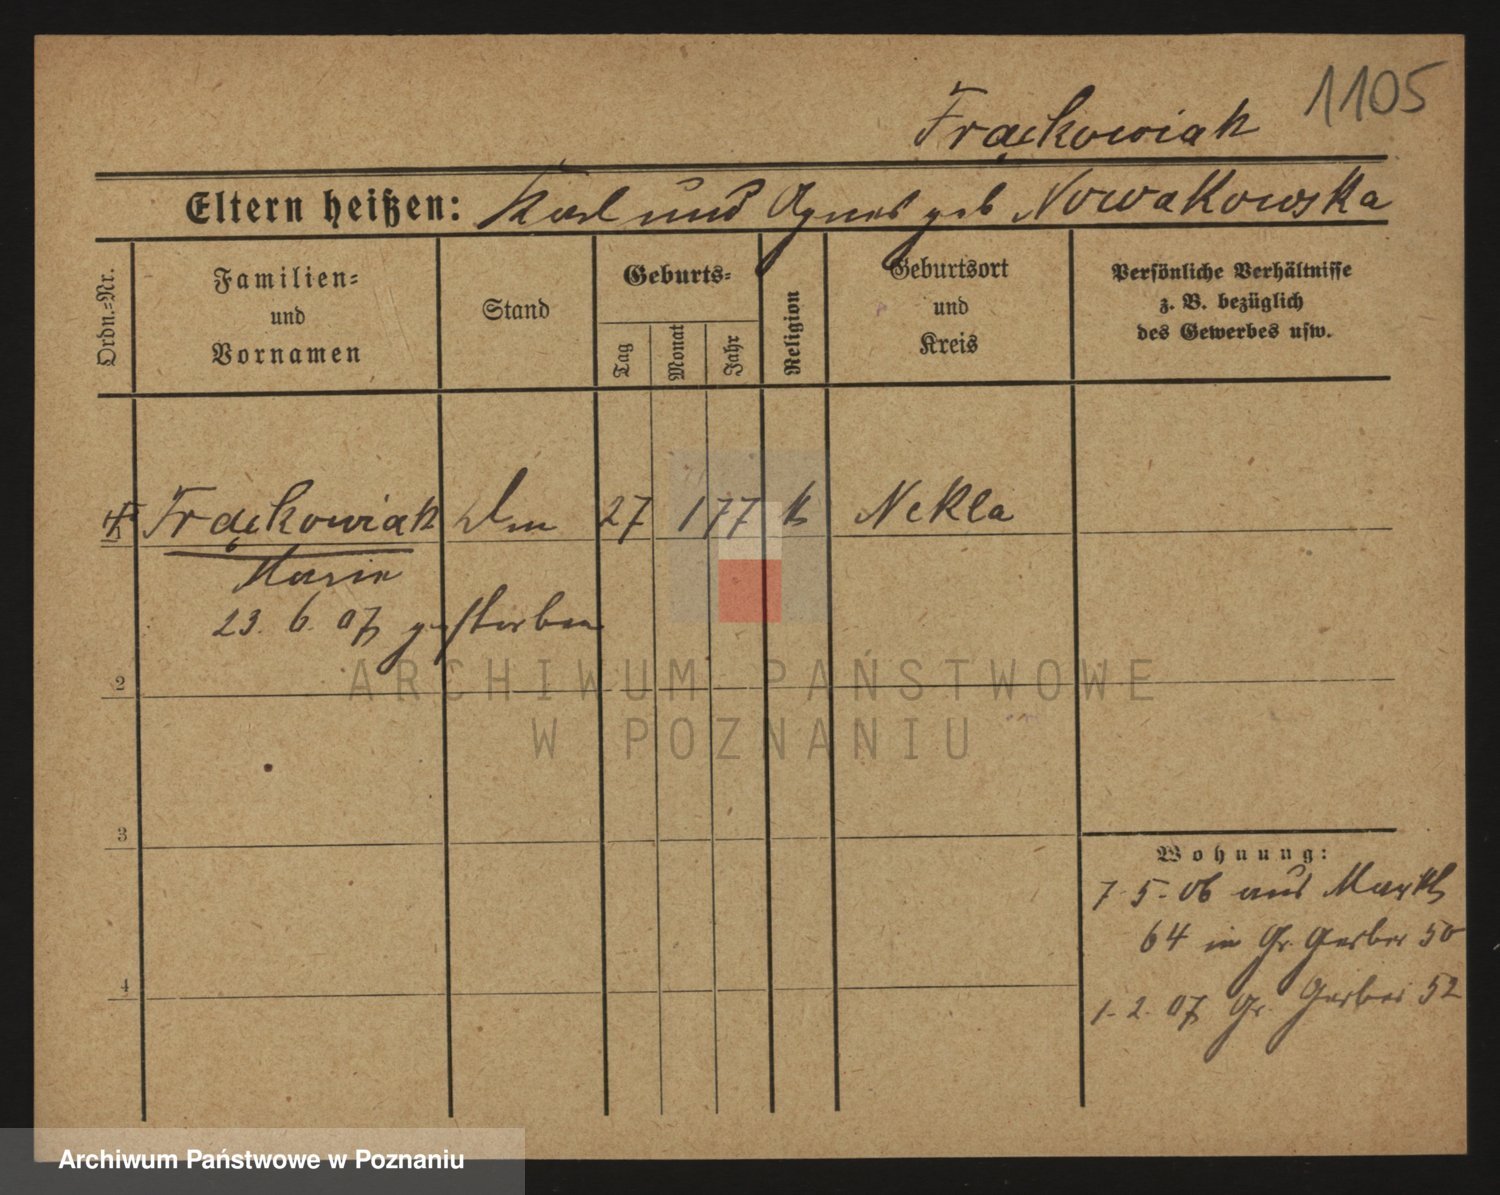 1105
Frąckowiak
Eltern heißen: Karl und Agnes geb Nowakowska
Ordn.-Nr.
Familien-
und
Vornamen
Stand
Geburts-
Tag
Monat
Jahr
Religion
Geburtsort
und
Kreis
Persönliche Verhältnisse
z. B. bezüglich
des Gewerbes usw.
1 Frąckowiak 27 1 77 k Nekla
Marie
23. 6. 07 gestorben
2
3
4
Wohnung:
7-5-06 aus Markt
64 in Gr. Gerber 50
1-2-07 Gr. Gerber 52
ARCHIWUM PAŃSTWOWE
W POZNANIU
Archiwum Państwowe w Poznaniu